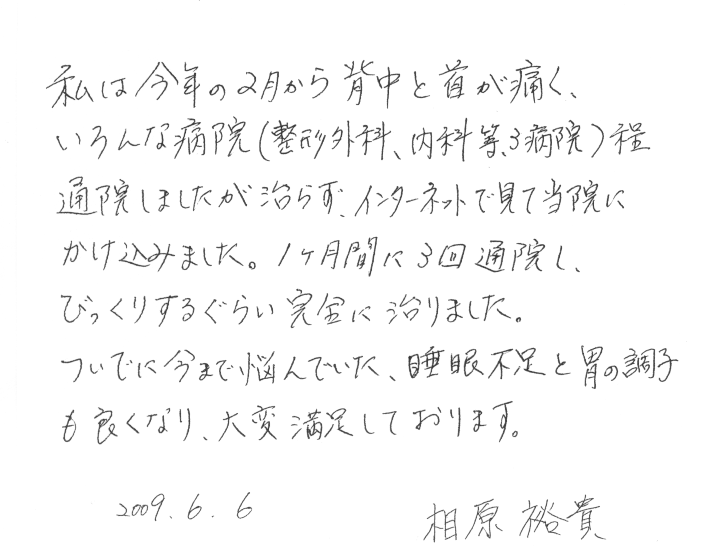 私は今年の2月から背中と首が痛く、
いろんな病院(整形外科、内科等、3病院)程
通院しましたが治らず、インターネットで見て当院に
かけ込みました。1ヶ月間に3回通院し、
びっくりするぐらい完全に治りました。
ついでに今まで悩んでいた、睡眠不足と胃の調子
も良くなり、大変満足しております。
2009.6.6
相原裕貴